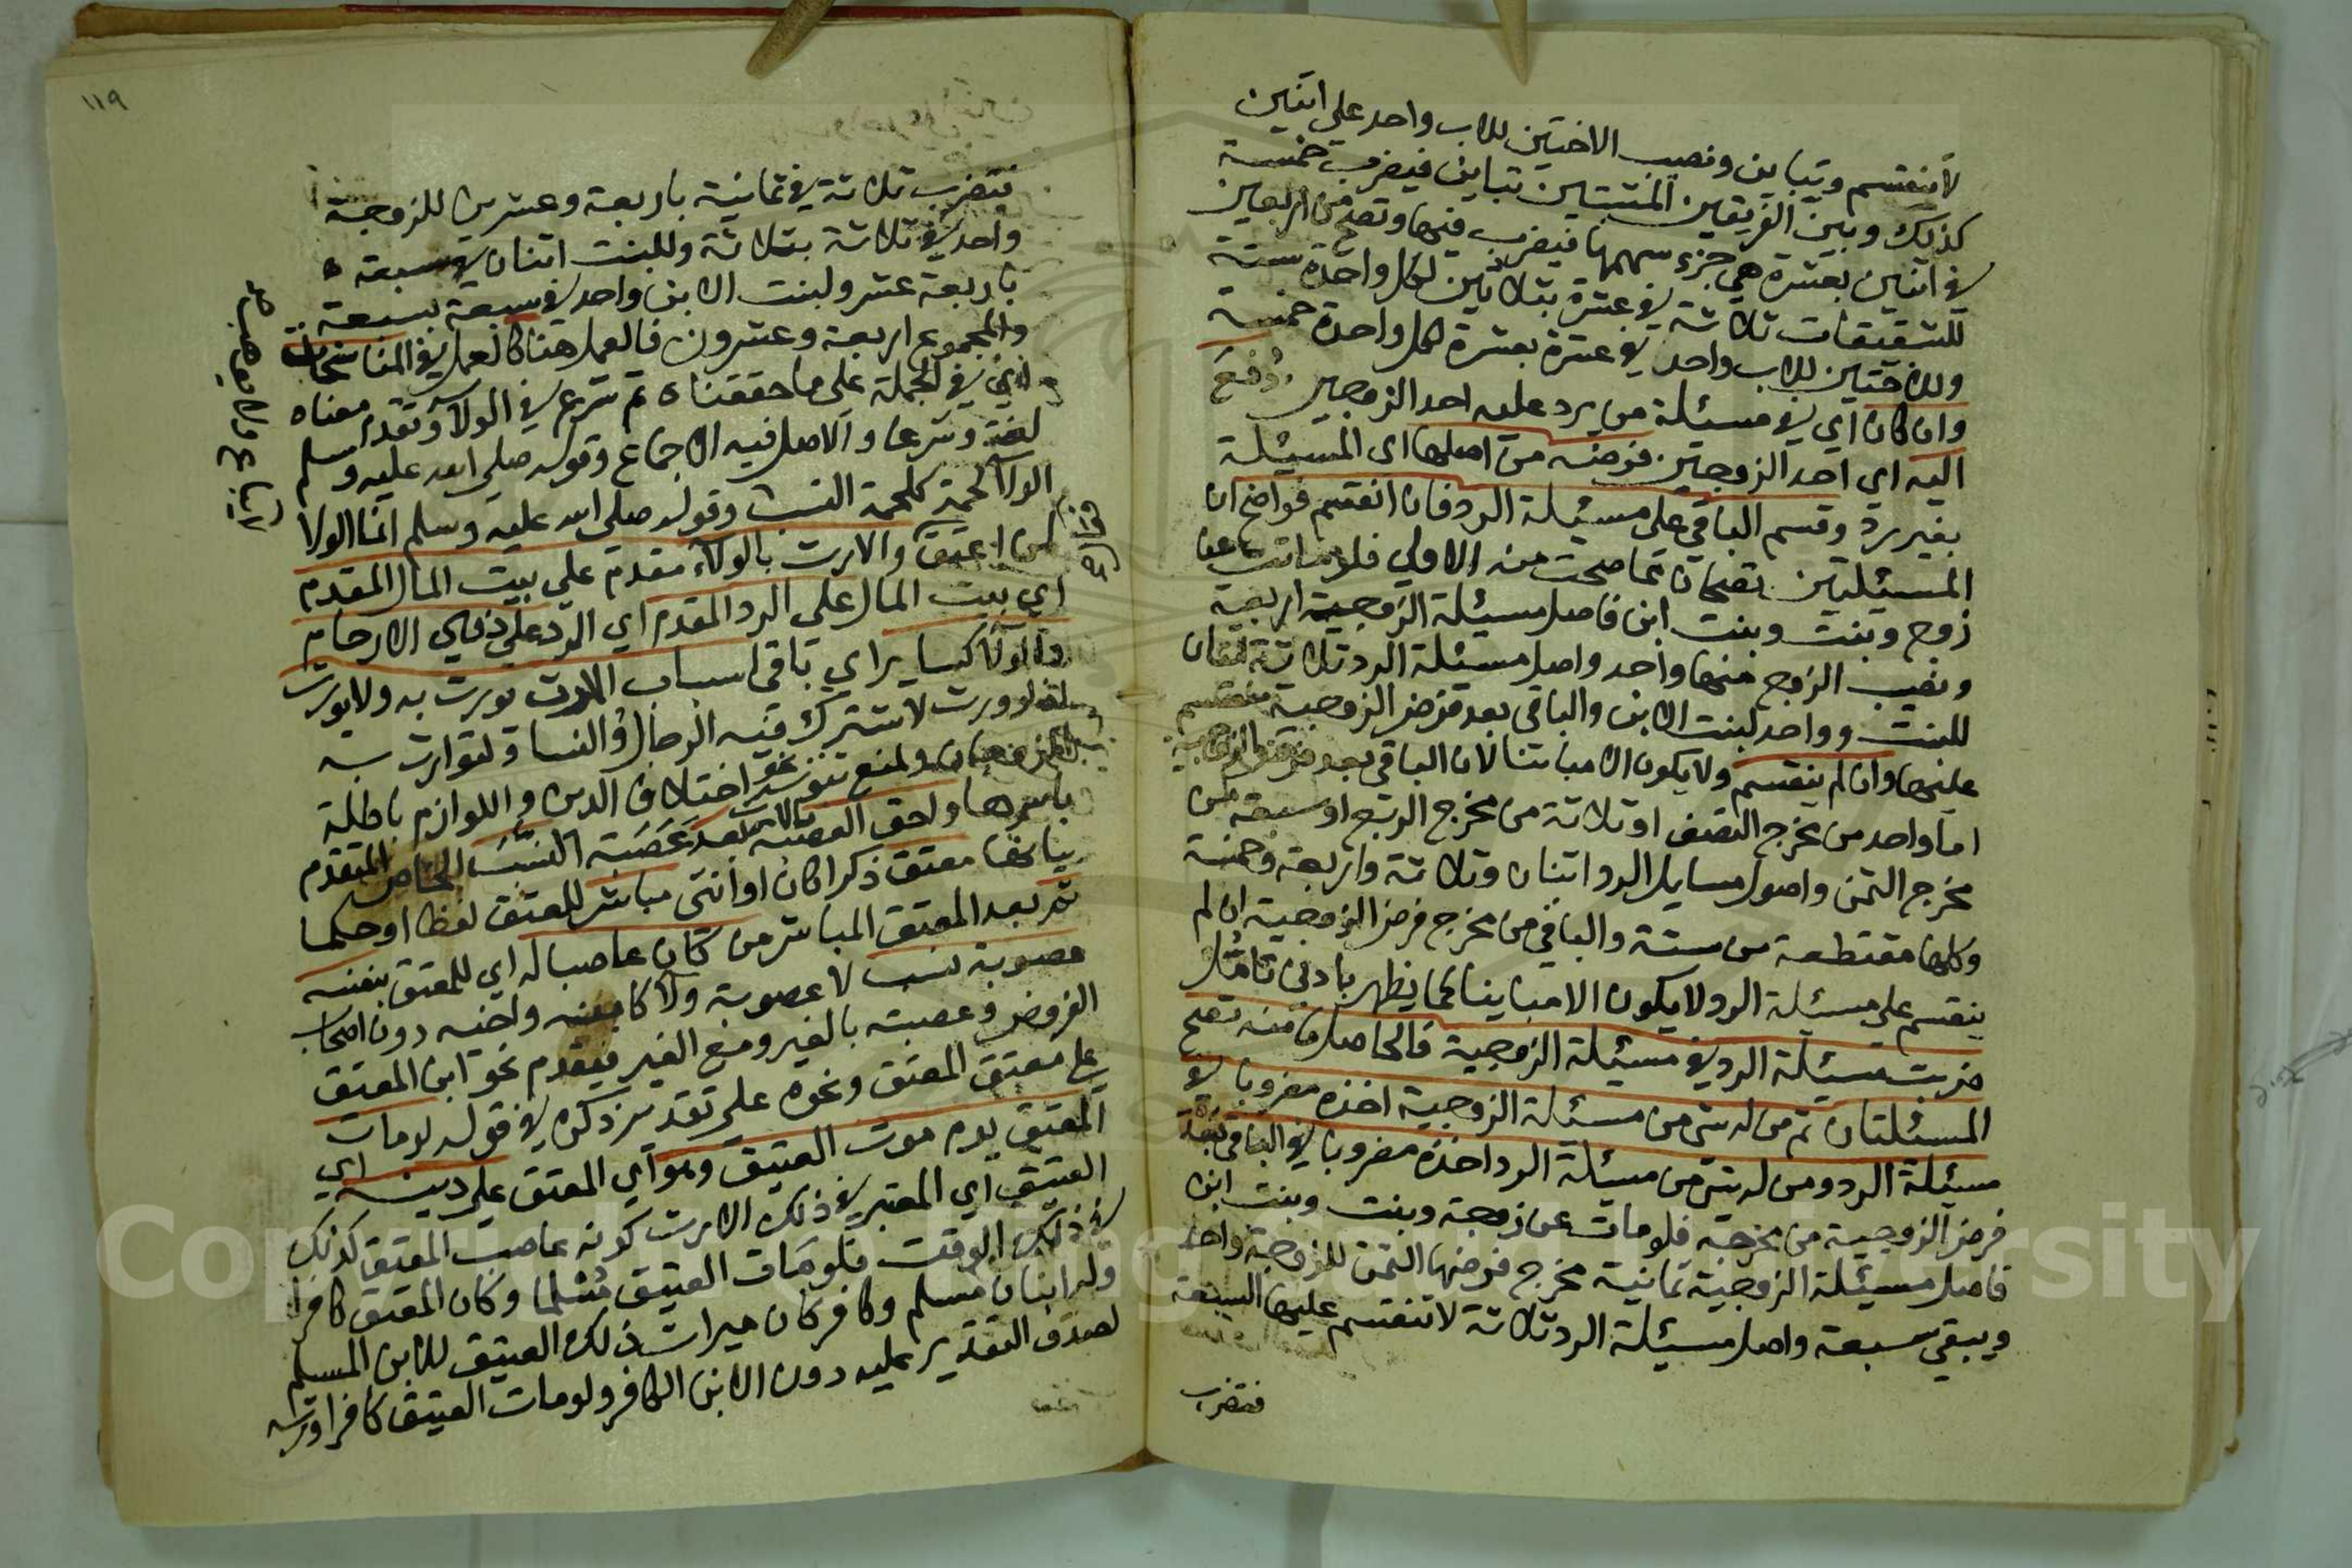 لا ينقسم ويباين ونصيب الاختين للاب واحد على اثنين
كذلك وبين الفريقين المثبتين تباين فيضرب خمسة
في اثنين بعشرة هي جزء سهمها فيضرب فيها وتصح من اربعين
للشقيقات ثلاثة في عشرة بثلاثين لكل واحدة ستة
وللاختين للاب واحد في عشرة بعشرة لكل واحدة خمسة
وان كان اي في مسئلة من يرد عليه احد الزوجين دفع
اليه اي احد الزوجين فرضه من اصلها اي المسئلة
بغير رد وقسم الباقي على مسئلة الرد فان انقسم فواضح ان
المسئلتين تصحان مما صحت منه الاولى فلو ماتت عن
زوج وبنت وبنت ابن فاصل مسئلة الزوجية اربعة
ونصيب الزوج منها واحد واصل مسئلة الرد ثلاثة اثنان
للبنت وواحد لبنت الابن والباقي بعد فرض الزوجية منقسم
عليها وان لم ينقسم ولا يكون الا مباينا لان الباقي بعد فرض الزوجية
اما واحد من مخرج النصف او ثلاثة من مخرج الربع او سبعة من
مخرج الثمن واصول مسايل الرد اثنان وثلاثة واربعة وخمسة
وكلها مقتطعة من ستة والباقي من مخرج فرض الزوجية ان لم
ينقسم على مسئلة الرد لا يكون الا مباينا كما يظهر بادنى تامل
ضربت مسئلة الرد في مسئلة الزوجية فالحاصل فمنه تصح
المسئلتان ثم من له شي من مسئلة الزوجية اخذه مضروبا في
مسئلة الرد ومن له شي من مسئلة الرد اخذه مضروبا في الباقي بعد
فرض الزوجية من مخرجه فلو مات عن زوجة وبنت وبنت ابن
فاصل مسئلة الزوجية ثمانية مخرج فرضها الثمن للزوجة واحد
ويبقى سبعة واصل مسئلة الرد ثلاثة لا تنقسم عليها السبعة
فتضرب
١١٩
فتضرب ثلاثة في ثمانية باربعة وعشرين للزوجة
واحد في ثلاثة بثلاثة وللبنت اثنان في سبعة
باربعة عشر ولبنت الابن واحد في سبعة بسبعة
والمجموع اربعة وعشرون فالعمل هنا كالعمل في المناسخات
في الجملة على ما حققناه ثم شرع في الولا وتقدم معناه
لغة وشرعا والاصل فيه الاجماع وقوله صلى الله عليه وسلم
الولا لحمة كلحمة النسب وقوله صلى الله عليه وسلم انما الولا
لمن اعتق والارث بالولاء مقدم على بيت المال المقدم
اي بيت المال على الرد المقدم اي الرد على ذوي الارحام
والولا كساير اي باقي اسباب الارث يورث به ولا يورث
لو ورث لاشترك فيه الرجال والنسا ولتوارث به
ولمنع نحو اختلاف الدين واللوازم باطلة
باسرها ولحق العصبة بعد عصبة النسب الخاص المتقدم
بيانها معتق ذكرا كان او انثى مباشر للعتق لفظا او حكما
ثم بعد المعتق المباشر من كان عاصبا له اي للمعتق بنفسه
عصوبة نسب لا عصوبة ولا كابنه واخيه دون اصحاب
الفروض وعصبته بالغير ومع الغير فيقدم نحو ابن المعتق
على معتق المعتق ونحوه على تقدير ذكره في قوله لو مات
المعتق يوم موت العتيق وهو اي المعتق على دينه اي
العتيق اي المعتبر في ذلك الارث كونه عاصب المعتق كذلك
في ذلك الوقت فلو مات العتيق مسلما وكان المعتق كافرا
وله ابنان مسلم وكافر كان ميراث ذلك العتيق للابن المسلم
لصدق التقدير عليه دون الابن الكافر ولو مات العتيق كافرا ورثه
لا يباع ولا يوهب
Copyright © King Saud University